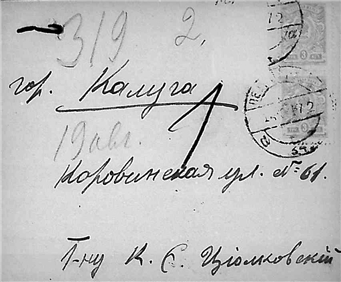 319
2,
гор. Калуга
19 авг.
Коровинская ул. № 61.
Г-ну К. Є. Ціолковскій